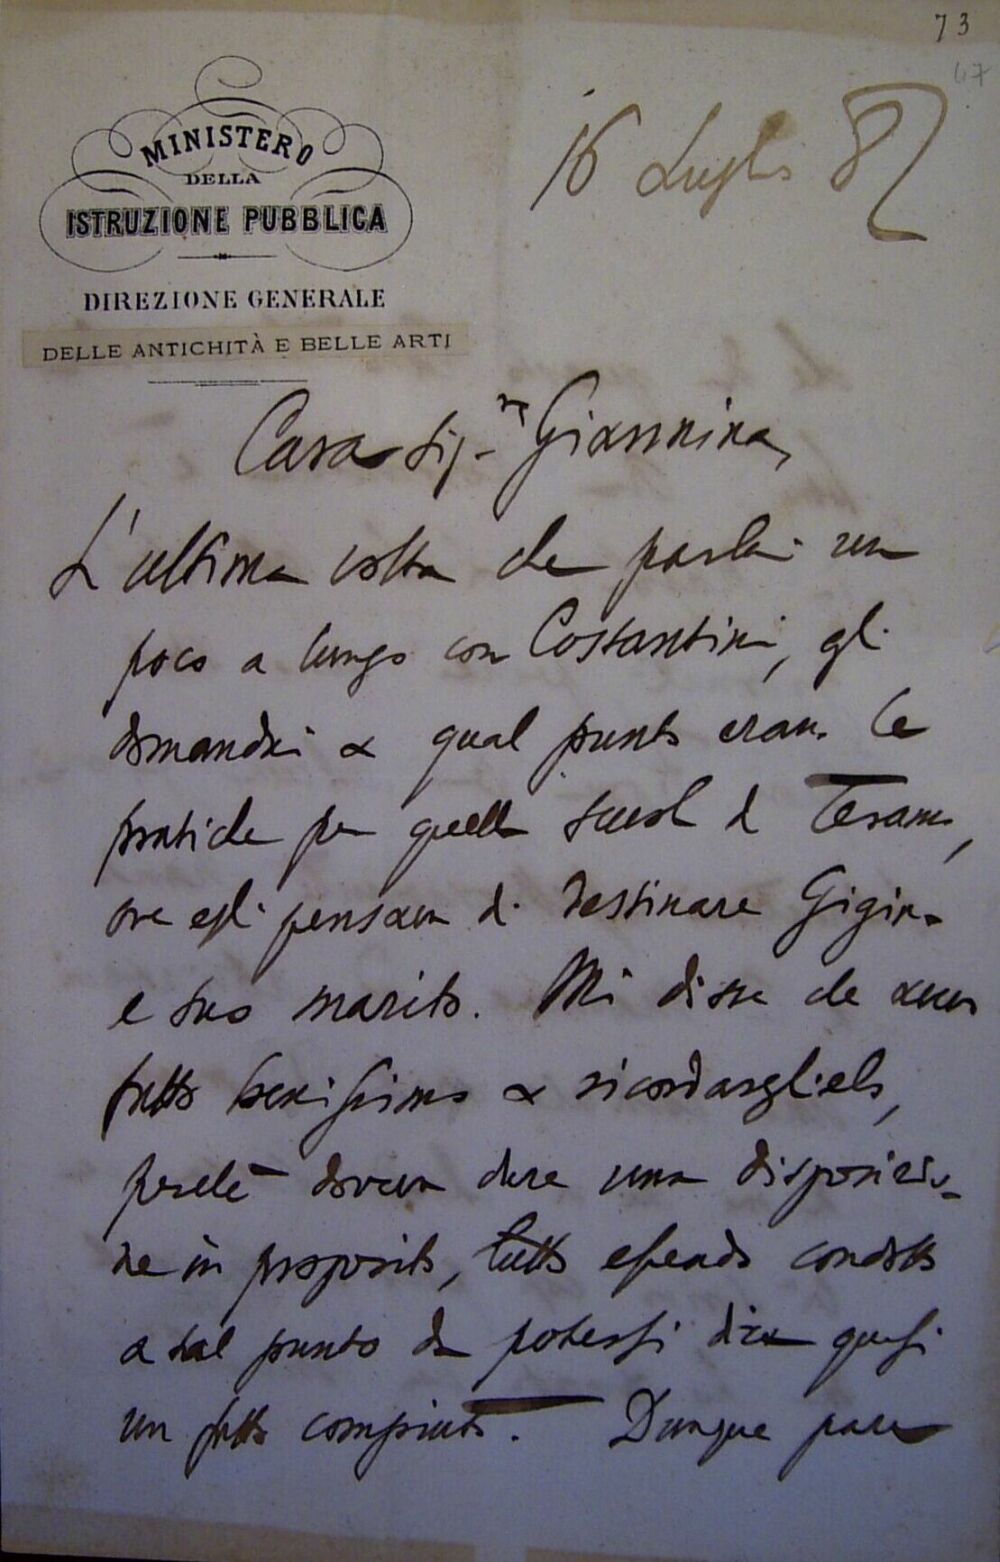 73
47
MINISTERO
DELLA
ISTRUZIONE PUBBLICA
DIREZIONE GENERALE
DELLE ANTICHITÀ E BELLE ARTI
16 Luglio 87
Cara Sig.ra Giannina,
L'ultima volta che parlai un
poco a lungo con Costantini, gli
domandai a qual punto erano le
pratiche per quella scuola di Teramo,
ove egli pensava di destinare Gigina
e suo marito. Mi disse che avevo
fatto benissimo a ricordarglielo,
perchè doveva dare una disposizio-
ne in proposito, tutto essendo condotto
a tal punto da potersi dire quasi
un fatto compiuto. Dunque pare